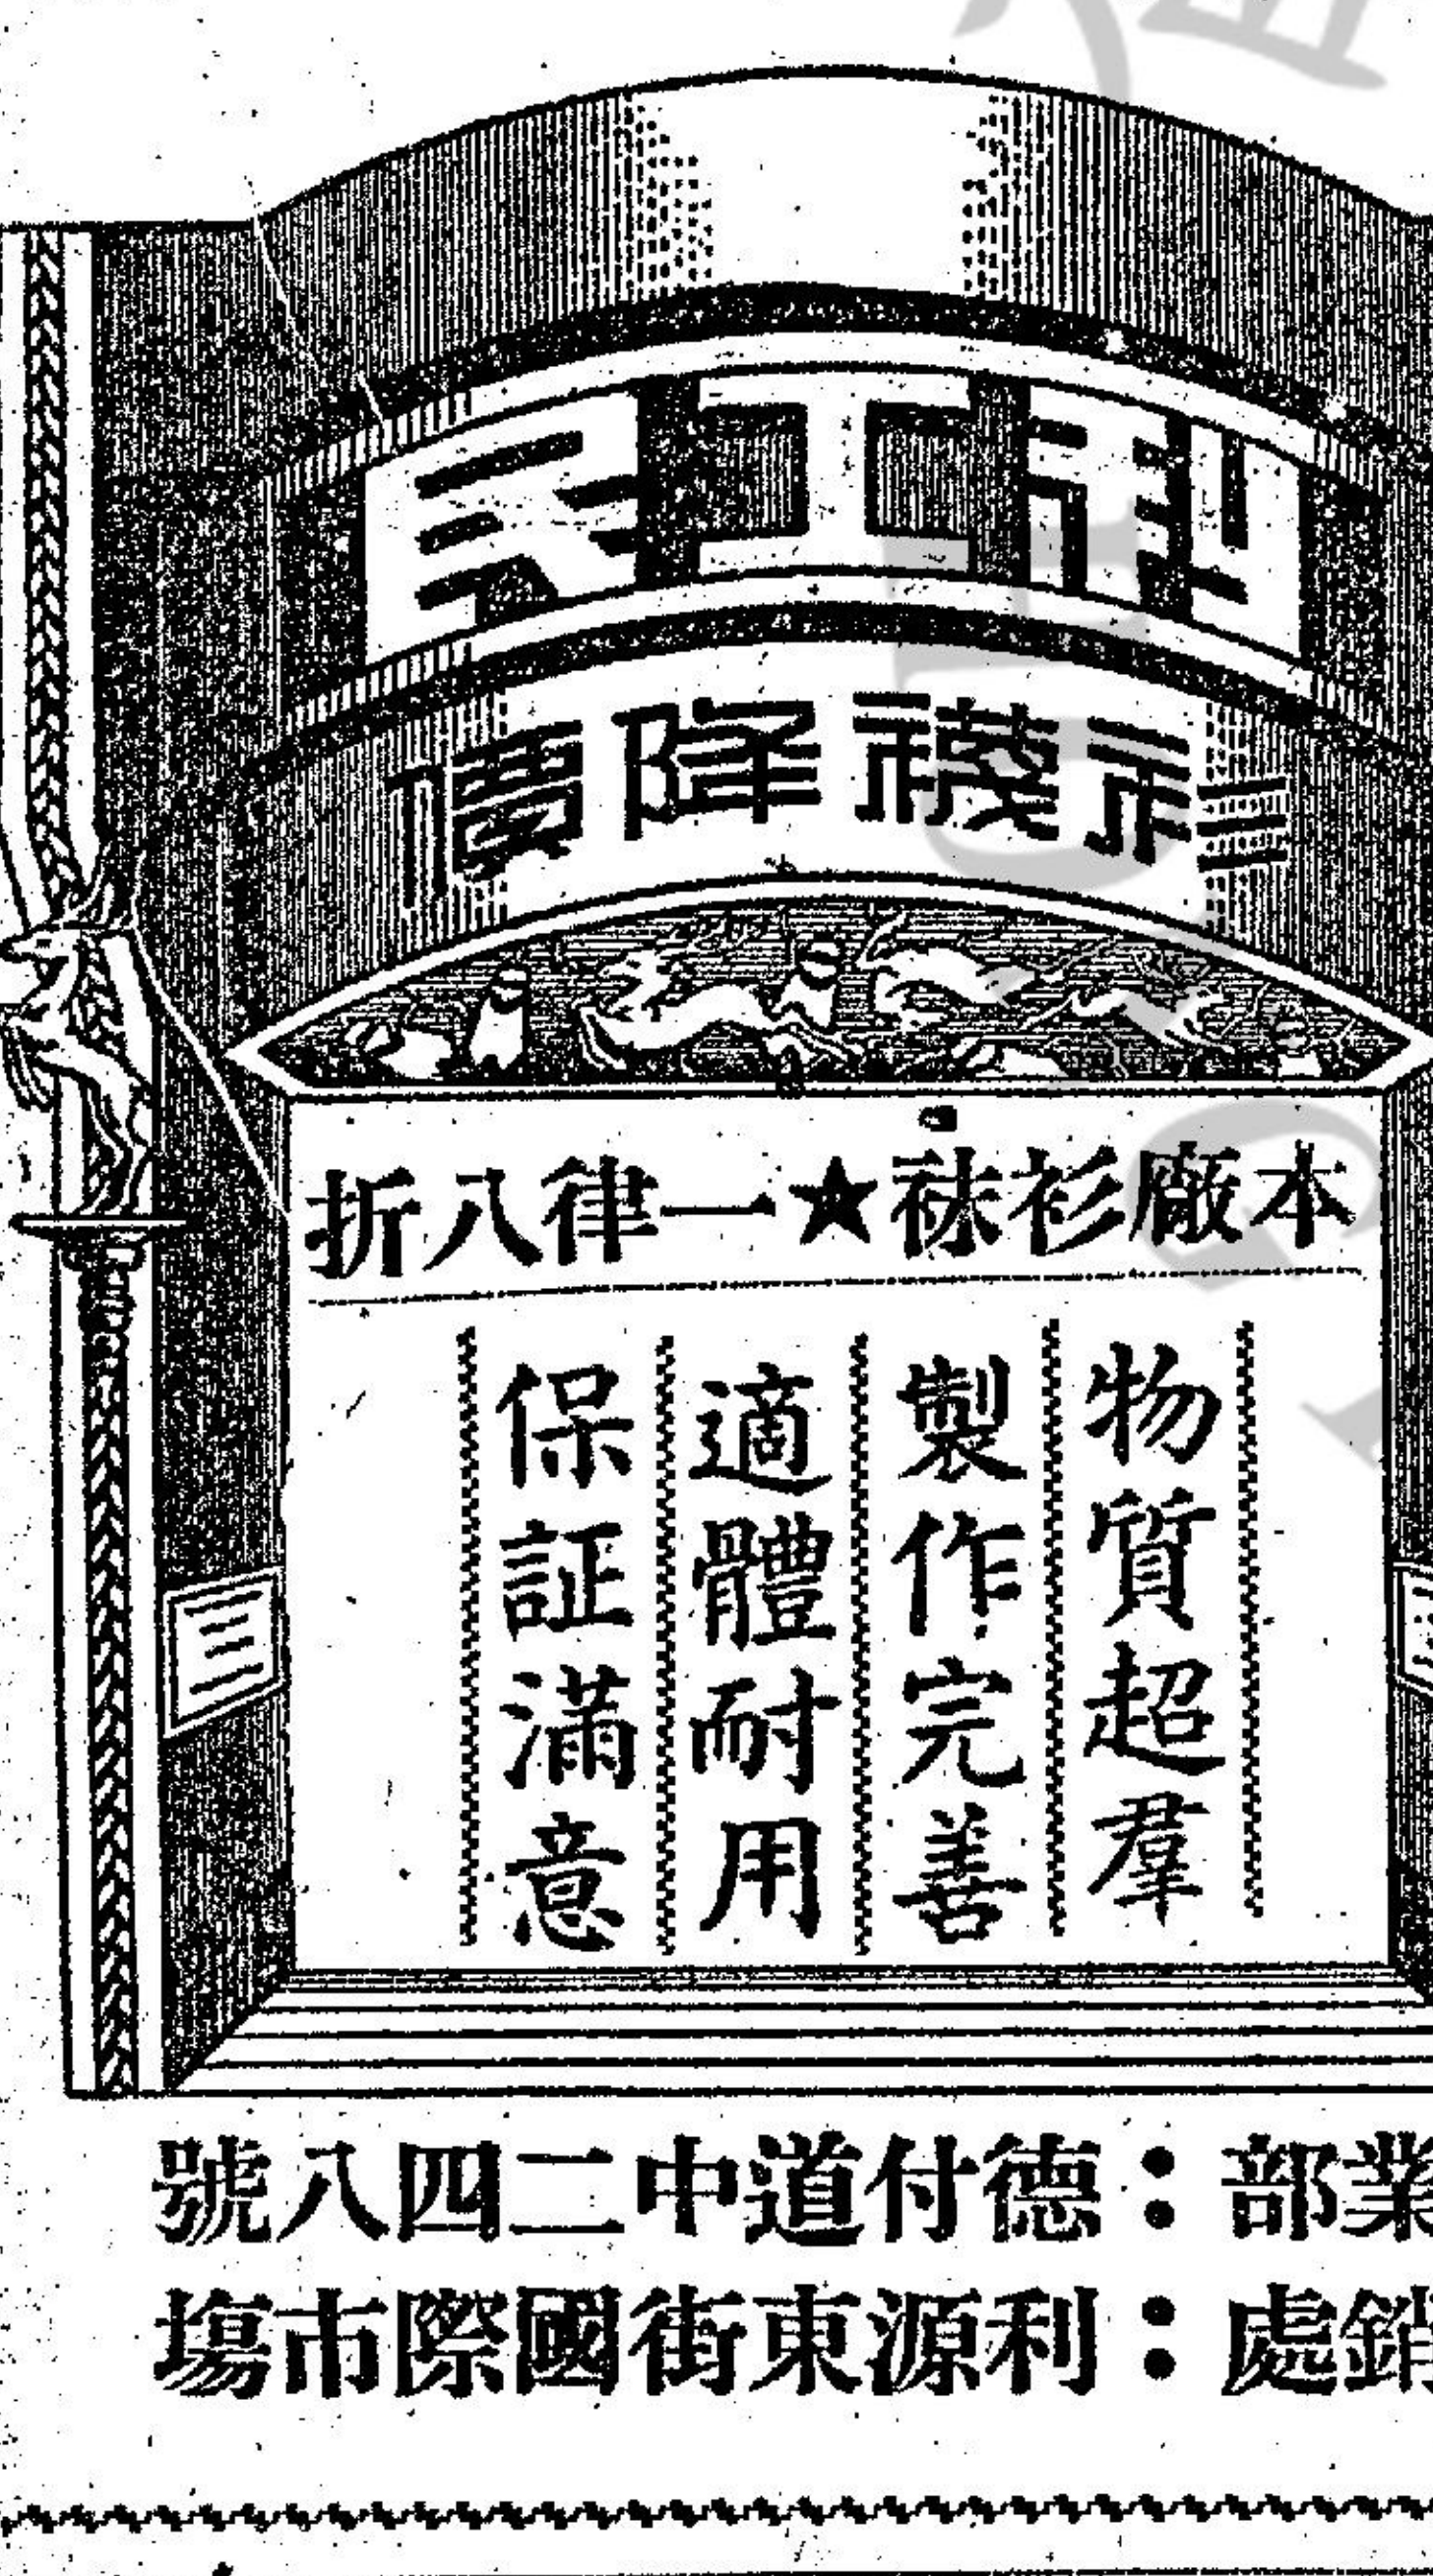 利工民
衫襪降價
本廠衫袜★一律八折
物質超羣
製作完善
適體耐用
保証滿意
三
業部：德付道中二四八號
銷處：利源東街國際市塲